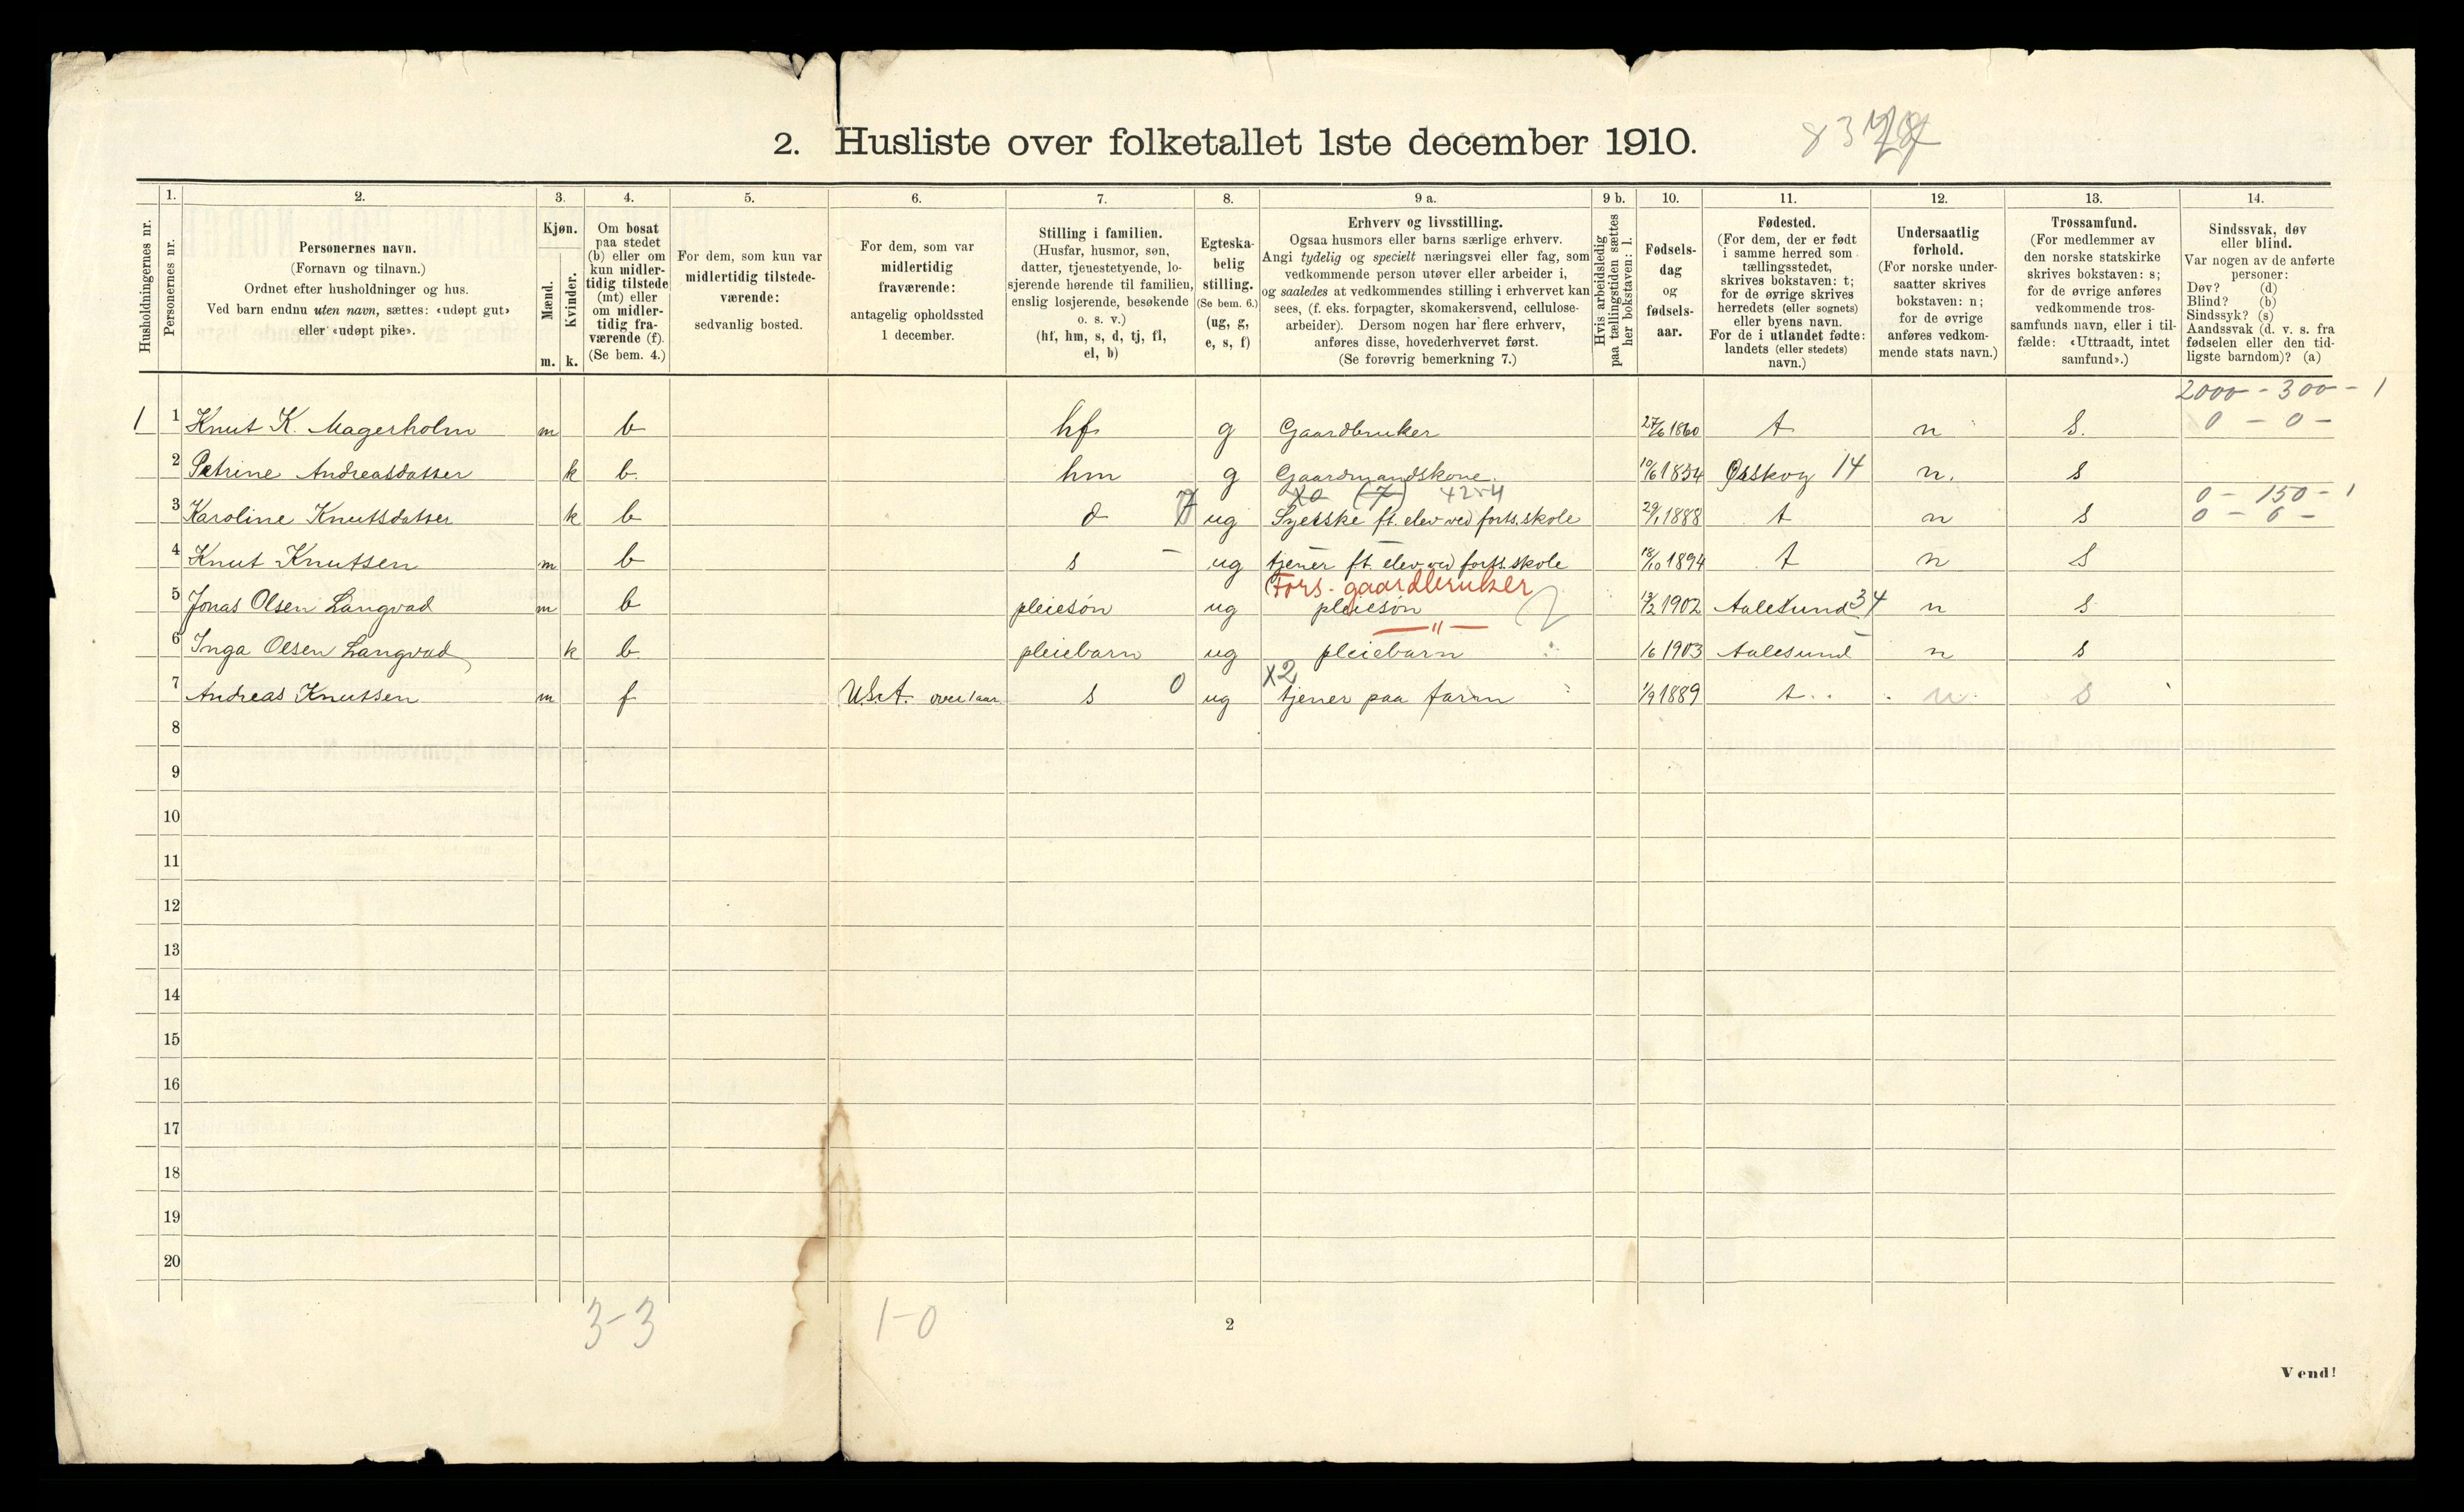 2. Husliste over folketallet 1ste december 1910.
Husholdningernes nr.
1.
Personernes nr.
2.
Personernes navn.
(Fornavn og tilnavn.)
Ordnet efter husholdninger og hus.
Ved barn endnu uten navn, sættes: «udøpt gut»
eller «udøpt pike».
3.
Kjøn.
Mænd.
Kvinder.
m. k.
4.
Om bosat
paa stedet
(b) eller om
kun midler-
tidig tilstede
(mt) eller
om midler-
tidig fra-
værende (f).
(Se bem. 4.)
5.
For dem, som kun var
midlertidig tilstede-
værende:
sedvanlig bosted.
6.
For dem, som var
midlertidig
fraværende:
antagelig opholdssted
1 december.
7.
Stilling i familien.
(Husfar, husmor, søn,
datter, tjenestetyende, lo-
sjerende hørende til familien,
enslig losjerende, besøkende
o. s. v.)
(hf, hm, s, d, tj, fl,
el, b)
8.
Egteska-
belig
stilling.
(Se bem. 6.)
(ug, g,
e, s, f)
9 a.
Erhverv og livsstilling.
Ogsaa husmors eller barns særlige erhverv.
Angi tydelig og specielt næringsvei eller fag, som
vedkommende person utøver eller arbeider i,
og saaledes at vedkommendes stilling i erhvervet kan
sees, (f. eks. forpagter, skomakersvend, cellulose-
arbeider). Dersom nogen har flere erhverv,
anføres disse, hovederhvervet først.
(Se forøvrig bemerkning 7.)
9 b.
Hvis arbeidsledig
paa tællingstiden sættes
her bokstaven: l.
10.
Fødsels-
dag
og
fødsels-
aar.
11.
Fødested.
(For dem, der er født
i samme herred som
tællingsstedet,
skrives bokstaven: t;
for de øvrige skrives
herredets (eller sognets)
eller byens navn.
For de i utlandet fødte:
landets (eller stedets)
navn.)
12.
Undersaatlig
forhold.
(For norske under-
saatter skrives
bokstaven: n;
for de øvrige
anføres vedkom-
mende stats navn.)
13.
Trossamfund.
(For medlemmer av
den norske statskirke
skrives bokstaven: s;
for de øvrige anføres
vedkommende tros-
samfunds navn, eller i til-
fælde: «Uttraadt, intet
samfund».)
14.
Sindssvak, døv
eller blind.
Var nogen av de anførte
personer:
Døv? (d)
Blind? (b)
Sindssyk? (s)
Aandssvak (d. v. s. fra
fødselen eller den tid-
ligste barndom)? (a)
2000 - 300 - 1
1 1 Knut K. Magerholm m b hf g Gaardbruker 27/6 1860 t n s. 0 - 0 -
2 Petrine Andreasdatter k b. hm g Gaardmandskone. 10/6 1854 Ørskog 14 n. s
(7) 4254 0 - 150 - 1
3 Karoline Knutsdatter k b d ug Syerske ft. elev ved forts. skole 29/1 1888 t n s 0 - 0 -
4 Knut Knutsen m b s - ug tjener ft. elev ved forts. skole 18/10 1894 t n s
Fors. gaardbruker
5 Jonas Olsen Langvad m b pleiesøn ug pleiesøn 13/2 1902 Aalesund 34 n s
— " —
6 Inga Olsen Langvad k b. pleiebarn ug pleiebarn 1/6 1903 Aalesund n s
X2
7 Andreas Knutsen m f U.S.A. over 1 aar s 0 ug tjener paa farm 1/9 1889 t n s
8
9
10
11
12
13
14
15
16
17
18
19
20
3-3 1-0
2
Vend!